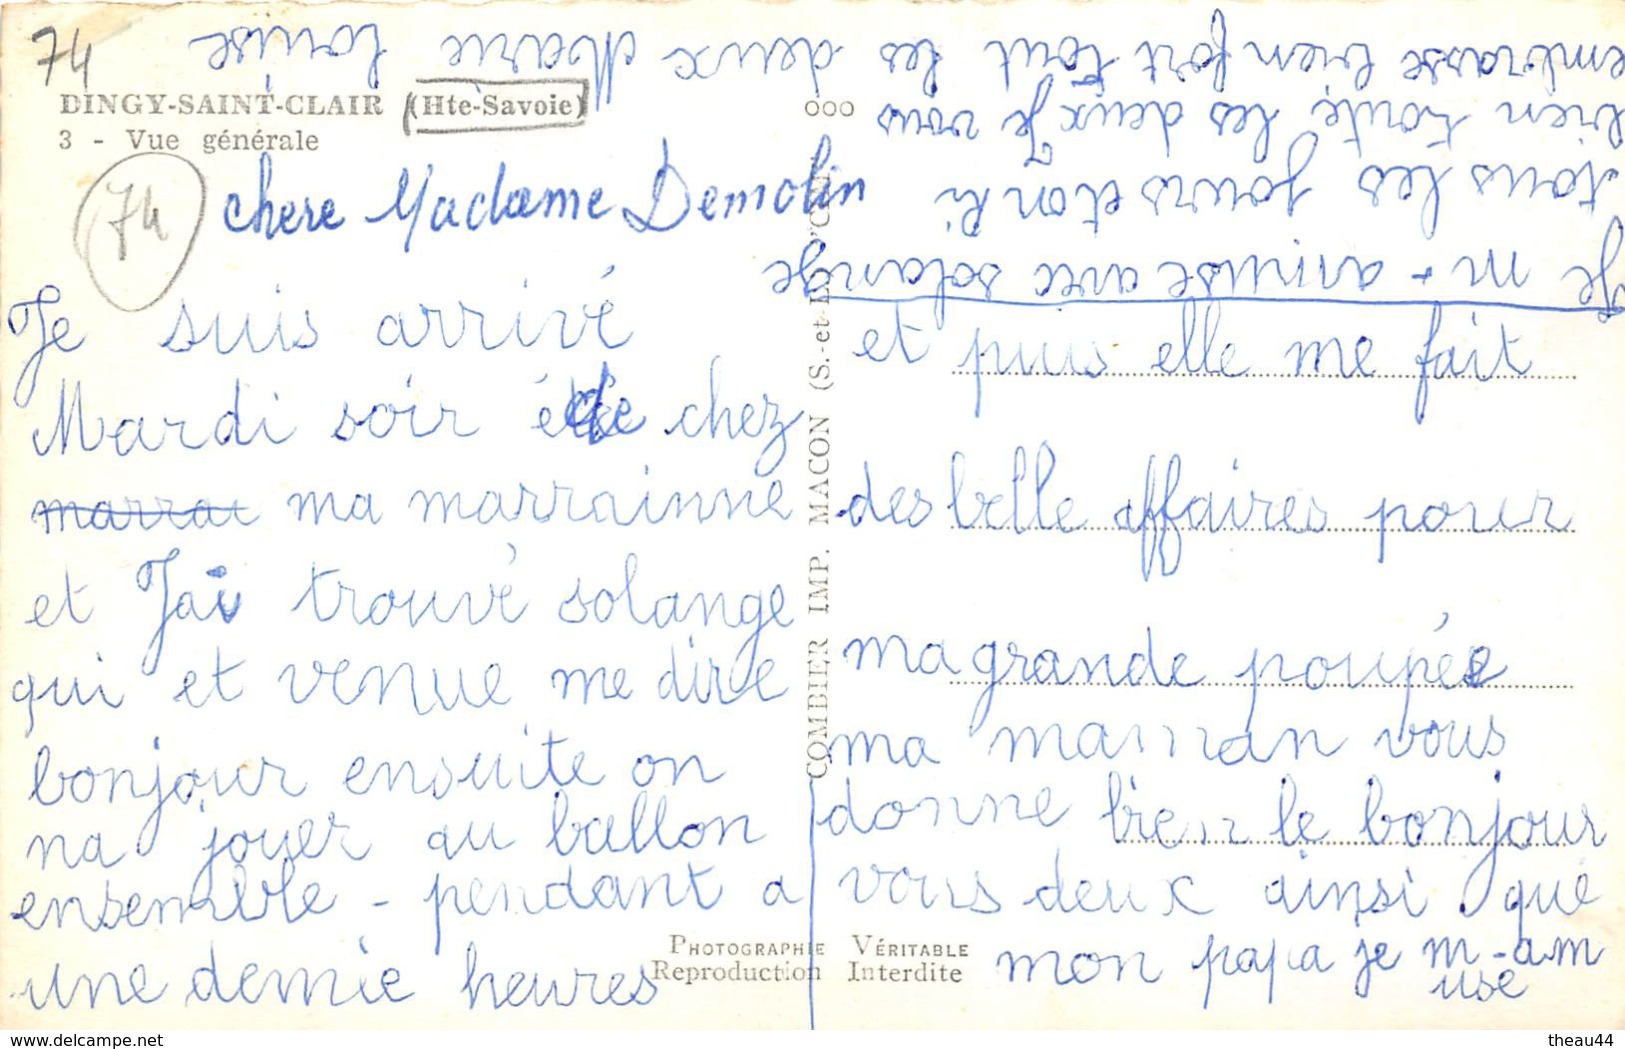 74
DINGY-SAINT-CLAIR (Hte-Savoie)
3 - Vue générale
ooo
74
chere Madame Demolin
Je suis arrivé
Mardi soir de chez
marrai ma marrainne
et Jai trouvé solange
qui et venue me dire
bonjour ensuite on
na jouer au ballon
ensemble - pendant a
une demie heures
et puis elle me fait
des belle affaires pour
ma grande poupée
ma maman vous
donne bien le bonjour
vous deux ainsi que
mon papa je m-am
use
Je m - amuse avec solange
tous les jours et on ri
bien toute les deux Je vous
embrasse bien fort tout les deux Marie Louise
COMBIER IMP. MACON (S.-et-L.)
PHOTOGRAPHIE VÉRITABLE
Reproduction Interdite
www.delcampe.net
theau44